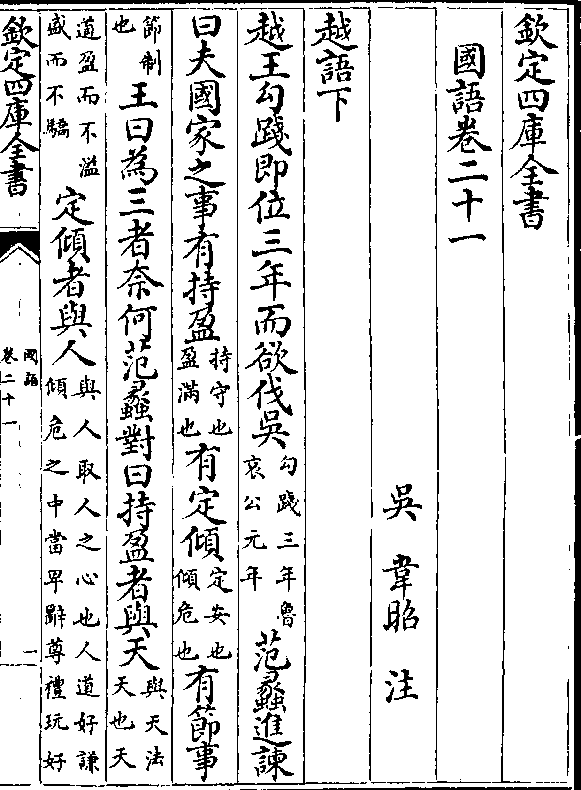 欽定四庫全書
國語卷二十一
吳 韋昭 注
越語下
越王勾踐即位三年而欲伐吳勾踐三年魯哀公元年范蠡進諫
曰夫國家之事有持盈持守也盈滿也有定傾定安也傾危也有節事
節制也王曰為三者奈何范蠡對曰持盈者與天與天法天也天
道盈而不溢盛而不驕定傾者與人與人取人之心也人道好謙傾危之中當卑辭尊禮玩好
欽定四庫全書
國語
卷二十一
一